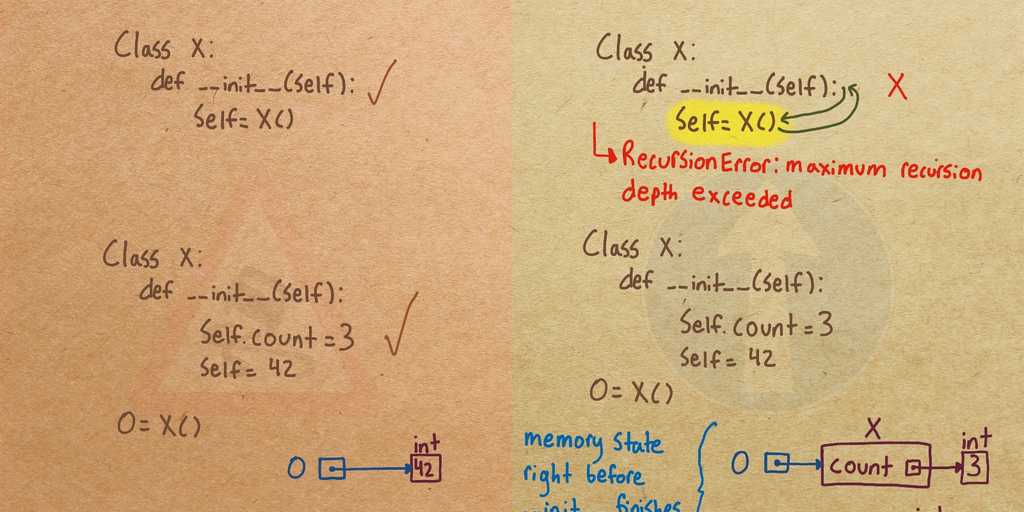 Class X:
def __init__(self):
Self= X()
Class X:
def __init__(self):
Self.count = 3
Self= 42
O= X()
int
O
42
Class X:
def __init__(self):
X
Self= X()
RecursionError: maximum recursion
depth exceeded
Class X:
def __init__(self):
Self.count = 3
Self= 42
O= X()
memory State
right before
__init__ finishes
X
int
O
count
3
int